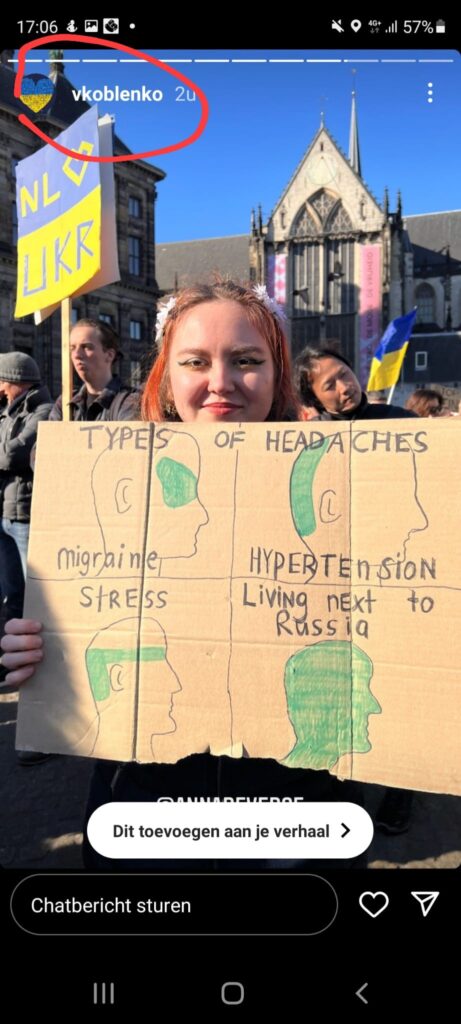 17:06
4G+
57%
vkoblenko 2u
NL
UKR
TYPES OF HEADACHES
migraine
HYPERTENSION
STRESS
Living next to
Russia
Dit toevoegen aan je verhaal
Chatbericht sturen